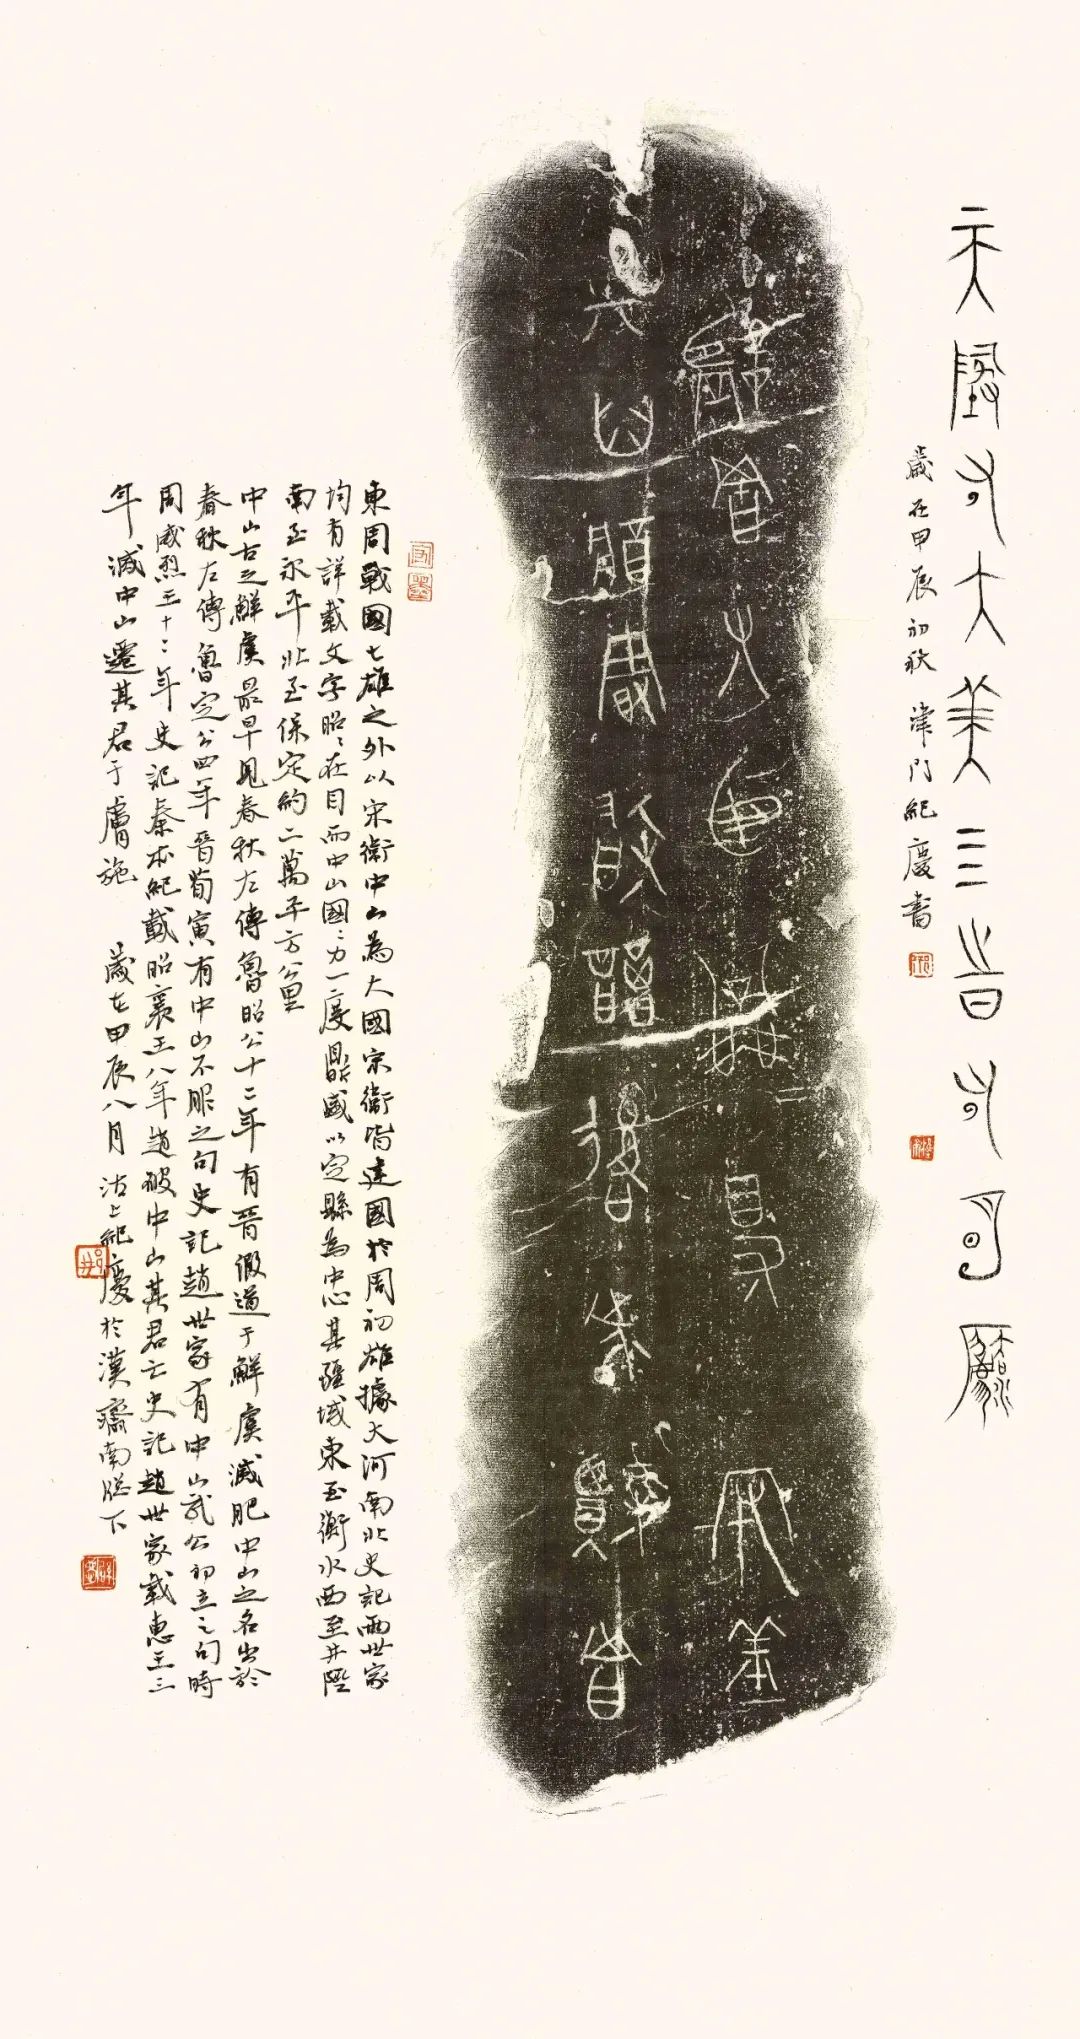 天地有大美四時有明法
歲在甲辰初秋津門紀慶書
監罟尤臣公乘得守丘
其臼將曼敢謁後俶賢者
東周戰國七雄之外以宋衛中山為大國宋衛皆建國於周初雄據大河南北史記兩世家
均有詳載文字昭〻在目而中山國〻力一度鼎盛以定縣為中心其疆域東至衡水西至井陘
南至永平北至保定約二萬平方公里
中山古之鮮虞最早見春秋左傳魯昭公十二年有晉假道于鮮虞滅肥中山之名出於
春秋左傳魯定公四年晉荀寅有中山不服之句史記趙世家有中山武公初立之句時
周威烈王十二年史記秦本紀載昭襄王八年趙破中山其君亡史記趙世家載惠王三
年滅中山遷其君于膚施 歲在甲辰八月沽上紀慶於漢齋南窗下